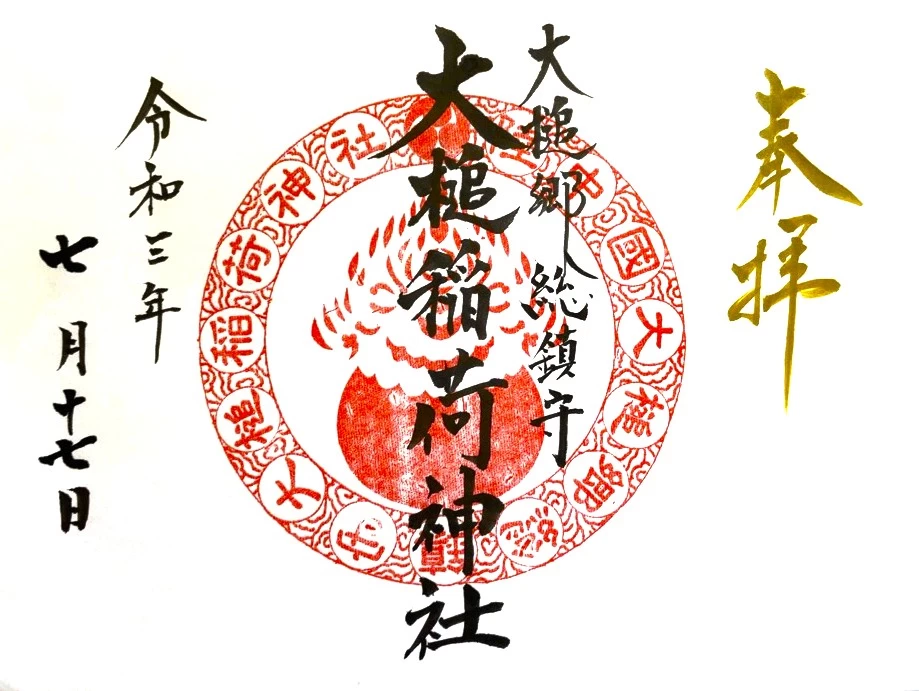 奉拝
大槌郷総鎮守
大槌稲荷神社
令和三年
七月十七日
中國大槌郷總鎮守大槌稲荷神社